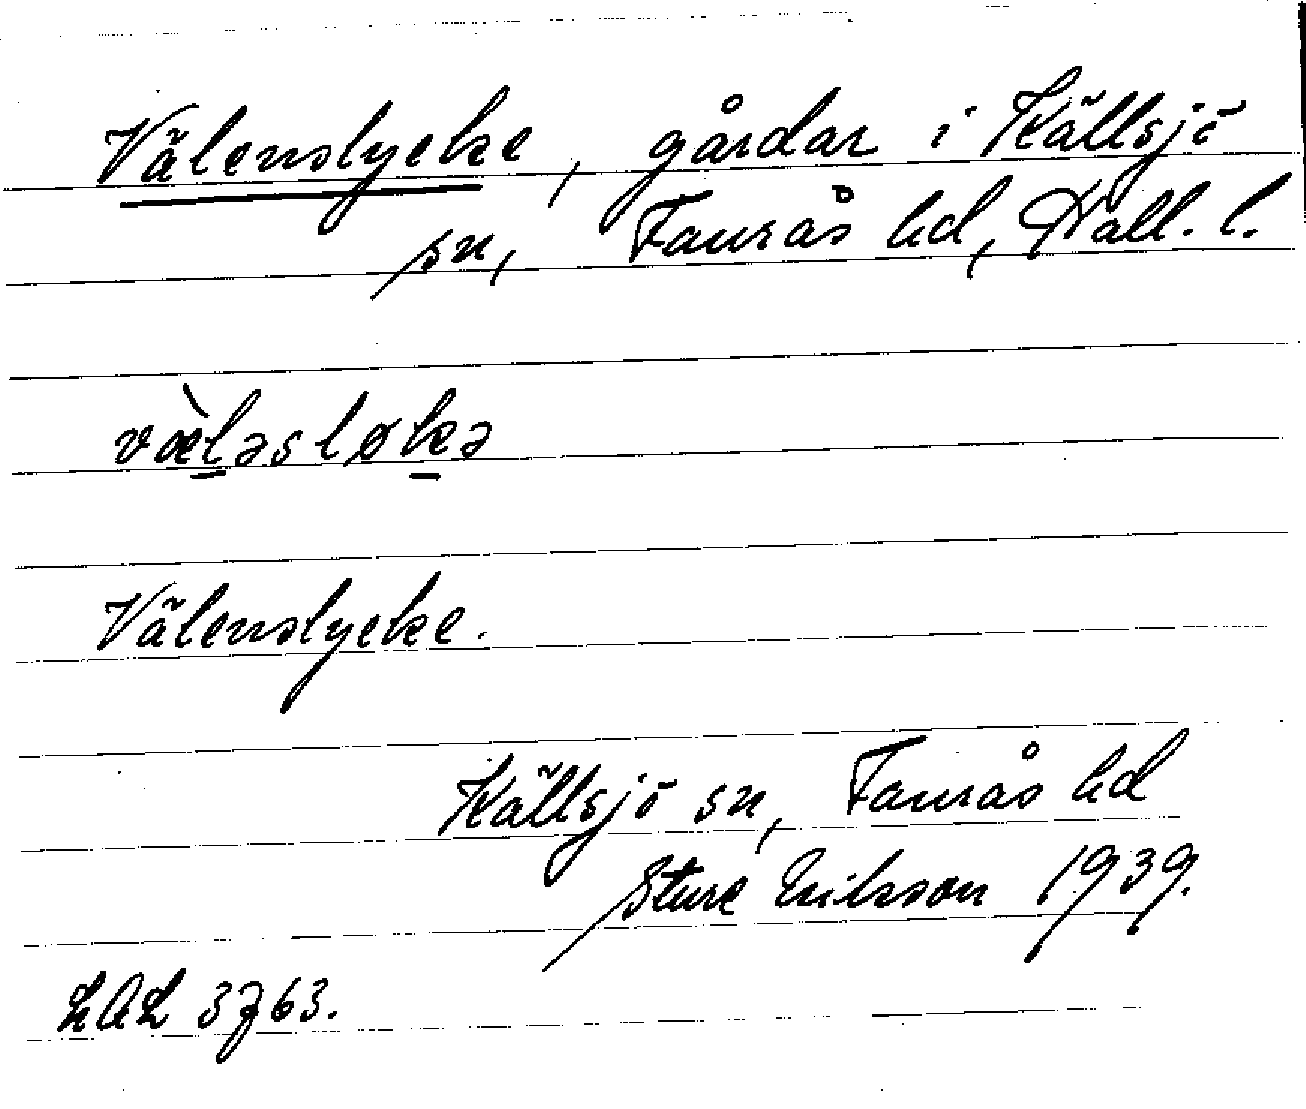 Välenslycke, gårdar i Källsjö
sn, Faurås hd, Hall. l.
væ̀ləsløkə
Välenslycke.
Källsjö sn, Faurås hd
Sture Eriksson 1939.
LAL 3763.